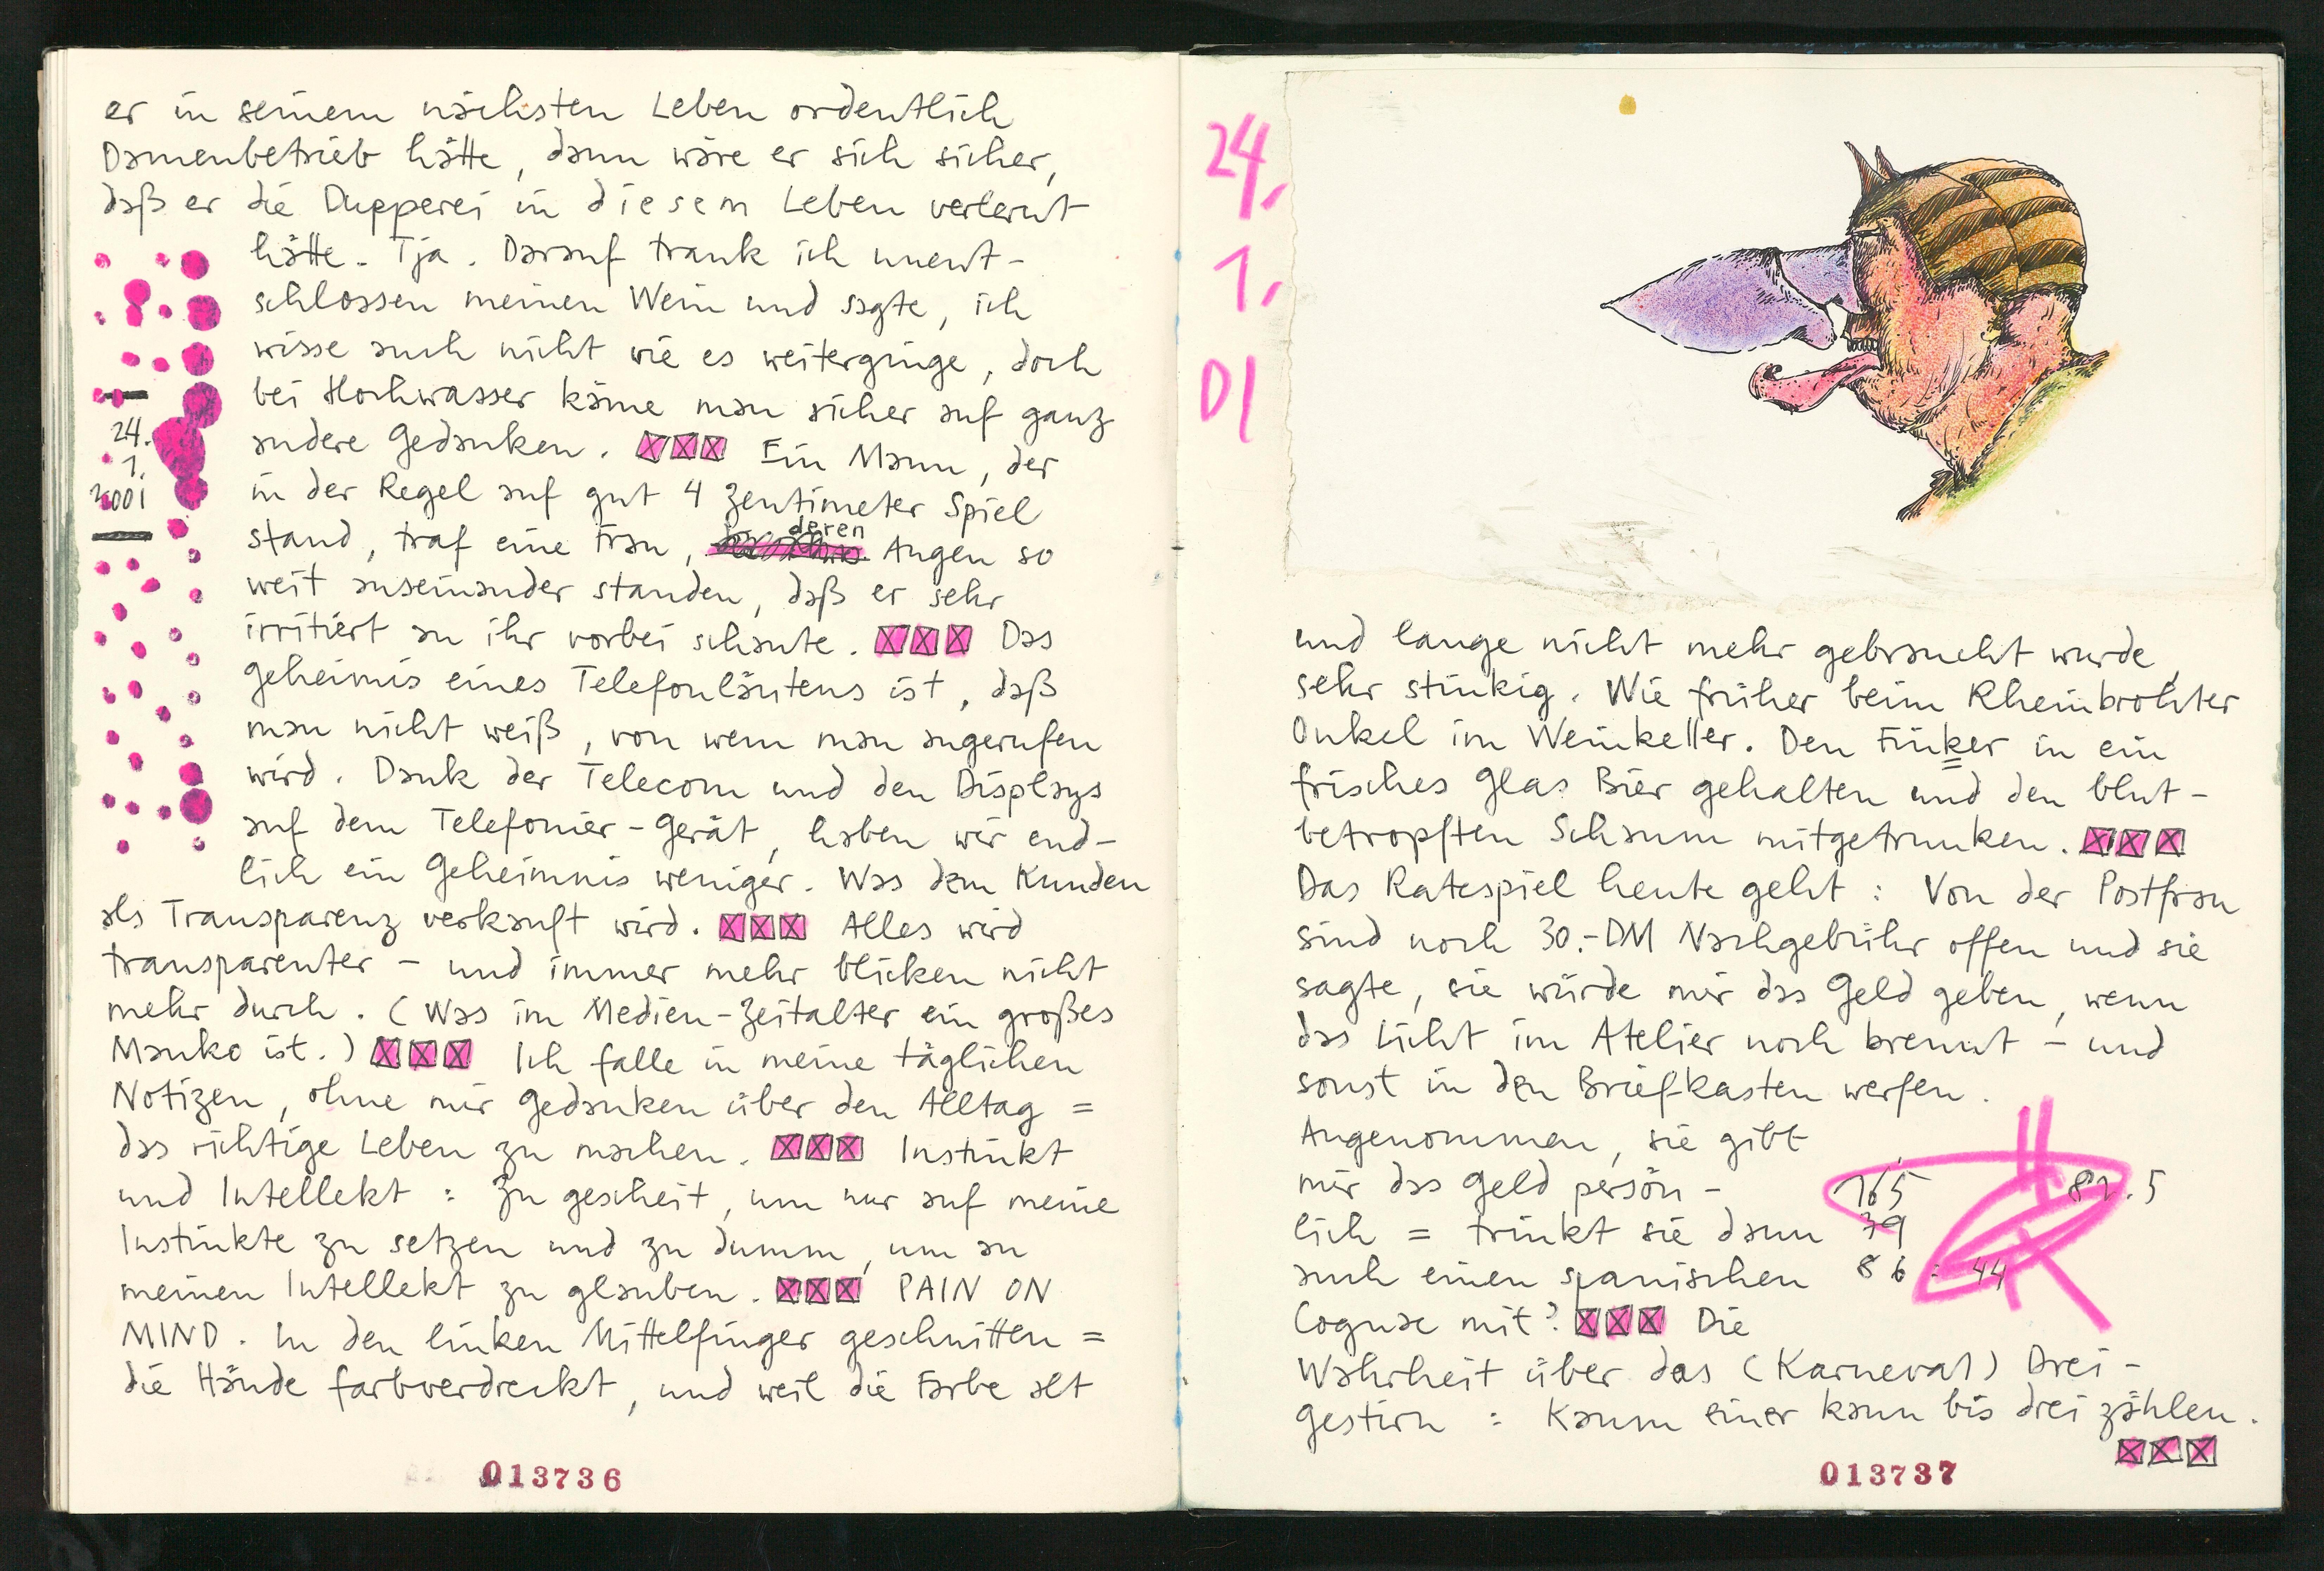 er in seinem nächsten Leben ordentlich
Damenbetrieb hätte, dann wäre er sich sicher,
daß er die Dupperei in diesem Leben verlernt
hätte. Tja. Darauf trank ich unent-
schlossen meinen Wein und sagte, ich
wisse auch nicht wie es weiterginge, doch
bei Hochwasser käme man sicher auf ganz
andere Gedanken. XXX Ein Mann, der
in der Regel auf gut 4 Zentimeter Spiel
stand, traf eine Frau, deren Augen so
weit auseinander standen, daß er sehr
irritiert an ihr vorbei schaute. XXX Das
Geheimnis eines Telefonläutens ist, daß
man nicht weiß, von wem man angerufen
wird. Dank der Telecom und den Displays
auf dem Telefonier-Gerät, haben wir end-
lich ein Geheimnis weniger. Was dem Kunden
als Transparenz verkauft wird. XXX Alles wird
transparenter - und immer mehr blicken nicht
mehr durch. (Was im Medien-Zeitalter ein großes
Manko ist.) XXX Ich falle in meine täglichen
Notizen, ohne mir Gedanken über den Alltag =
das richtige Leben zu machen. XXX Instinkt
und Intellekt: Zu gescheit, um nur auf meine
Instinkte zu setzen und zu dumm, um an
meinen Intellekt zu glauben. XXX PAIN ON
MIND. In den linken Mittelfinger geschnitten =
die Hände farbverdreckt, und weil die Farbe alt
24.
1.
2001
013736
24.
1.
01
und lange nicht mehr gebraucht wurde,
sehr stinkig. Wie früher beim Rheinbrohler
Onkel im Weinkeller. Den Finker in ein
frisches Glas Bier gehalten und den blut-
betropften Schaum mitgetrunken. XXX
Das Ratespiel heute geht: Von der Postfrau
sind noch 30.-DM Nachgebühr offen und sie
sagte, sie würde mir das Geld geben, wenn
das Licht im Atelier noch brennt - und
sonst in den Briefkasten werfen.
Angenommen, sie gibt
mir das Geld persön-
lich = trinkt sie dann
auch einen spanischen
Cognac mit? XXX Die
Wahrheit über das (Karneval) Drei-
gestirn: Kaum einer kann bis drei zählen.
XXX
165
39
86 : 44
013737